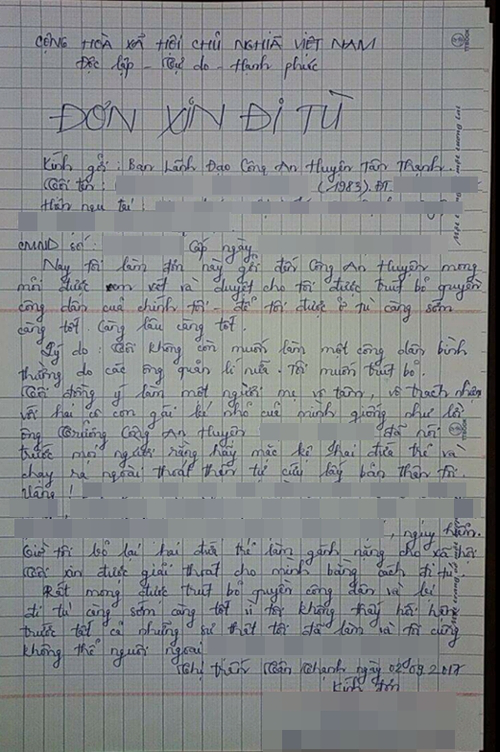 CỘNG HÒA XÃ HỘI CHỦ NGHĨA VIỆT NAM
Độc lập - Tự do - Hạnh phúc
ĐƠN XIN ĐI TÙ
Kính gởi : Ban Lãnh Đạo Công An Huyện Tân Thạnh.
Tôi tên : (1983). ĐT
Hiện ngụ tại :
CMND số : Cấp ngày
Nay tôi làm đơn này gởi đến Công An Huyện mong
mỏi được xem xét và duyệt cho tôi được trút bỏ quyền
công dân của chính tôi - để tôi được ở tù càng sớm
càng tốt. Càng lâu càng tốt.
Lý do : Tôi không còn muốn làm một công dân bình
thường do các ông quản lí nữa. Tôi muốn trút bỏ.
Tôi đồng ý làm một người mẹ vô tâm, vô trách nhiệm
với hai cô con gái bé nhỏ của mình giống như lời
ông Trưởng Công An Huyện đã nói
trước mọi người rằng hãy mặc kệ hai đứa trẻ và
chạy ra ngoài thoát thân tự cứu lấy bản thân tôi.
Vâng !
, nguy hiểm.
Giờ tôi bỏ lại hai đứa trẻ làm gánh nặng cho xã hội
Tôi xin được giải thoát cho mình bằng cách đi tù
Rất mong được trút bỏ quyền công dân và
đi tù càng sớm càng tốt vì tôi không thấy hối hận
trước tất cả những sự thật tôi đã làm và tôi cũng
không thể nguôi ngoai
Thị trấn Tân Thạnh ngày 02.09.2017
Kính đơn